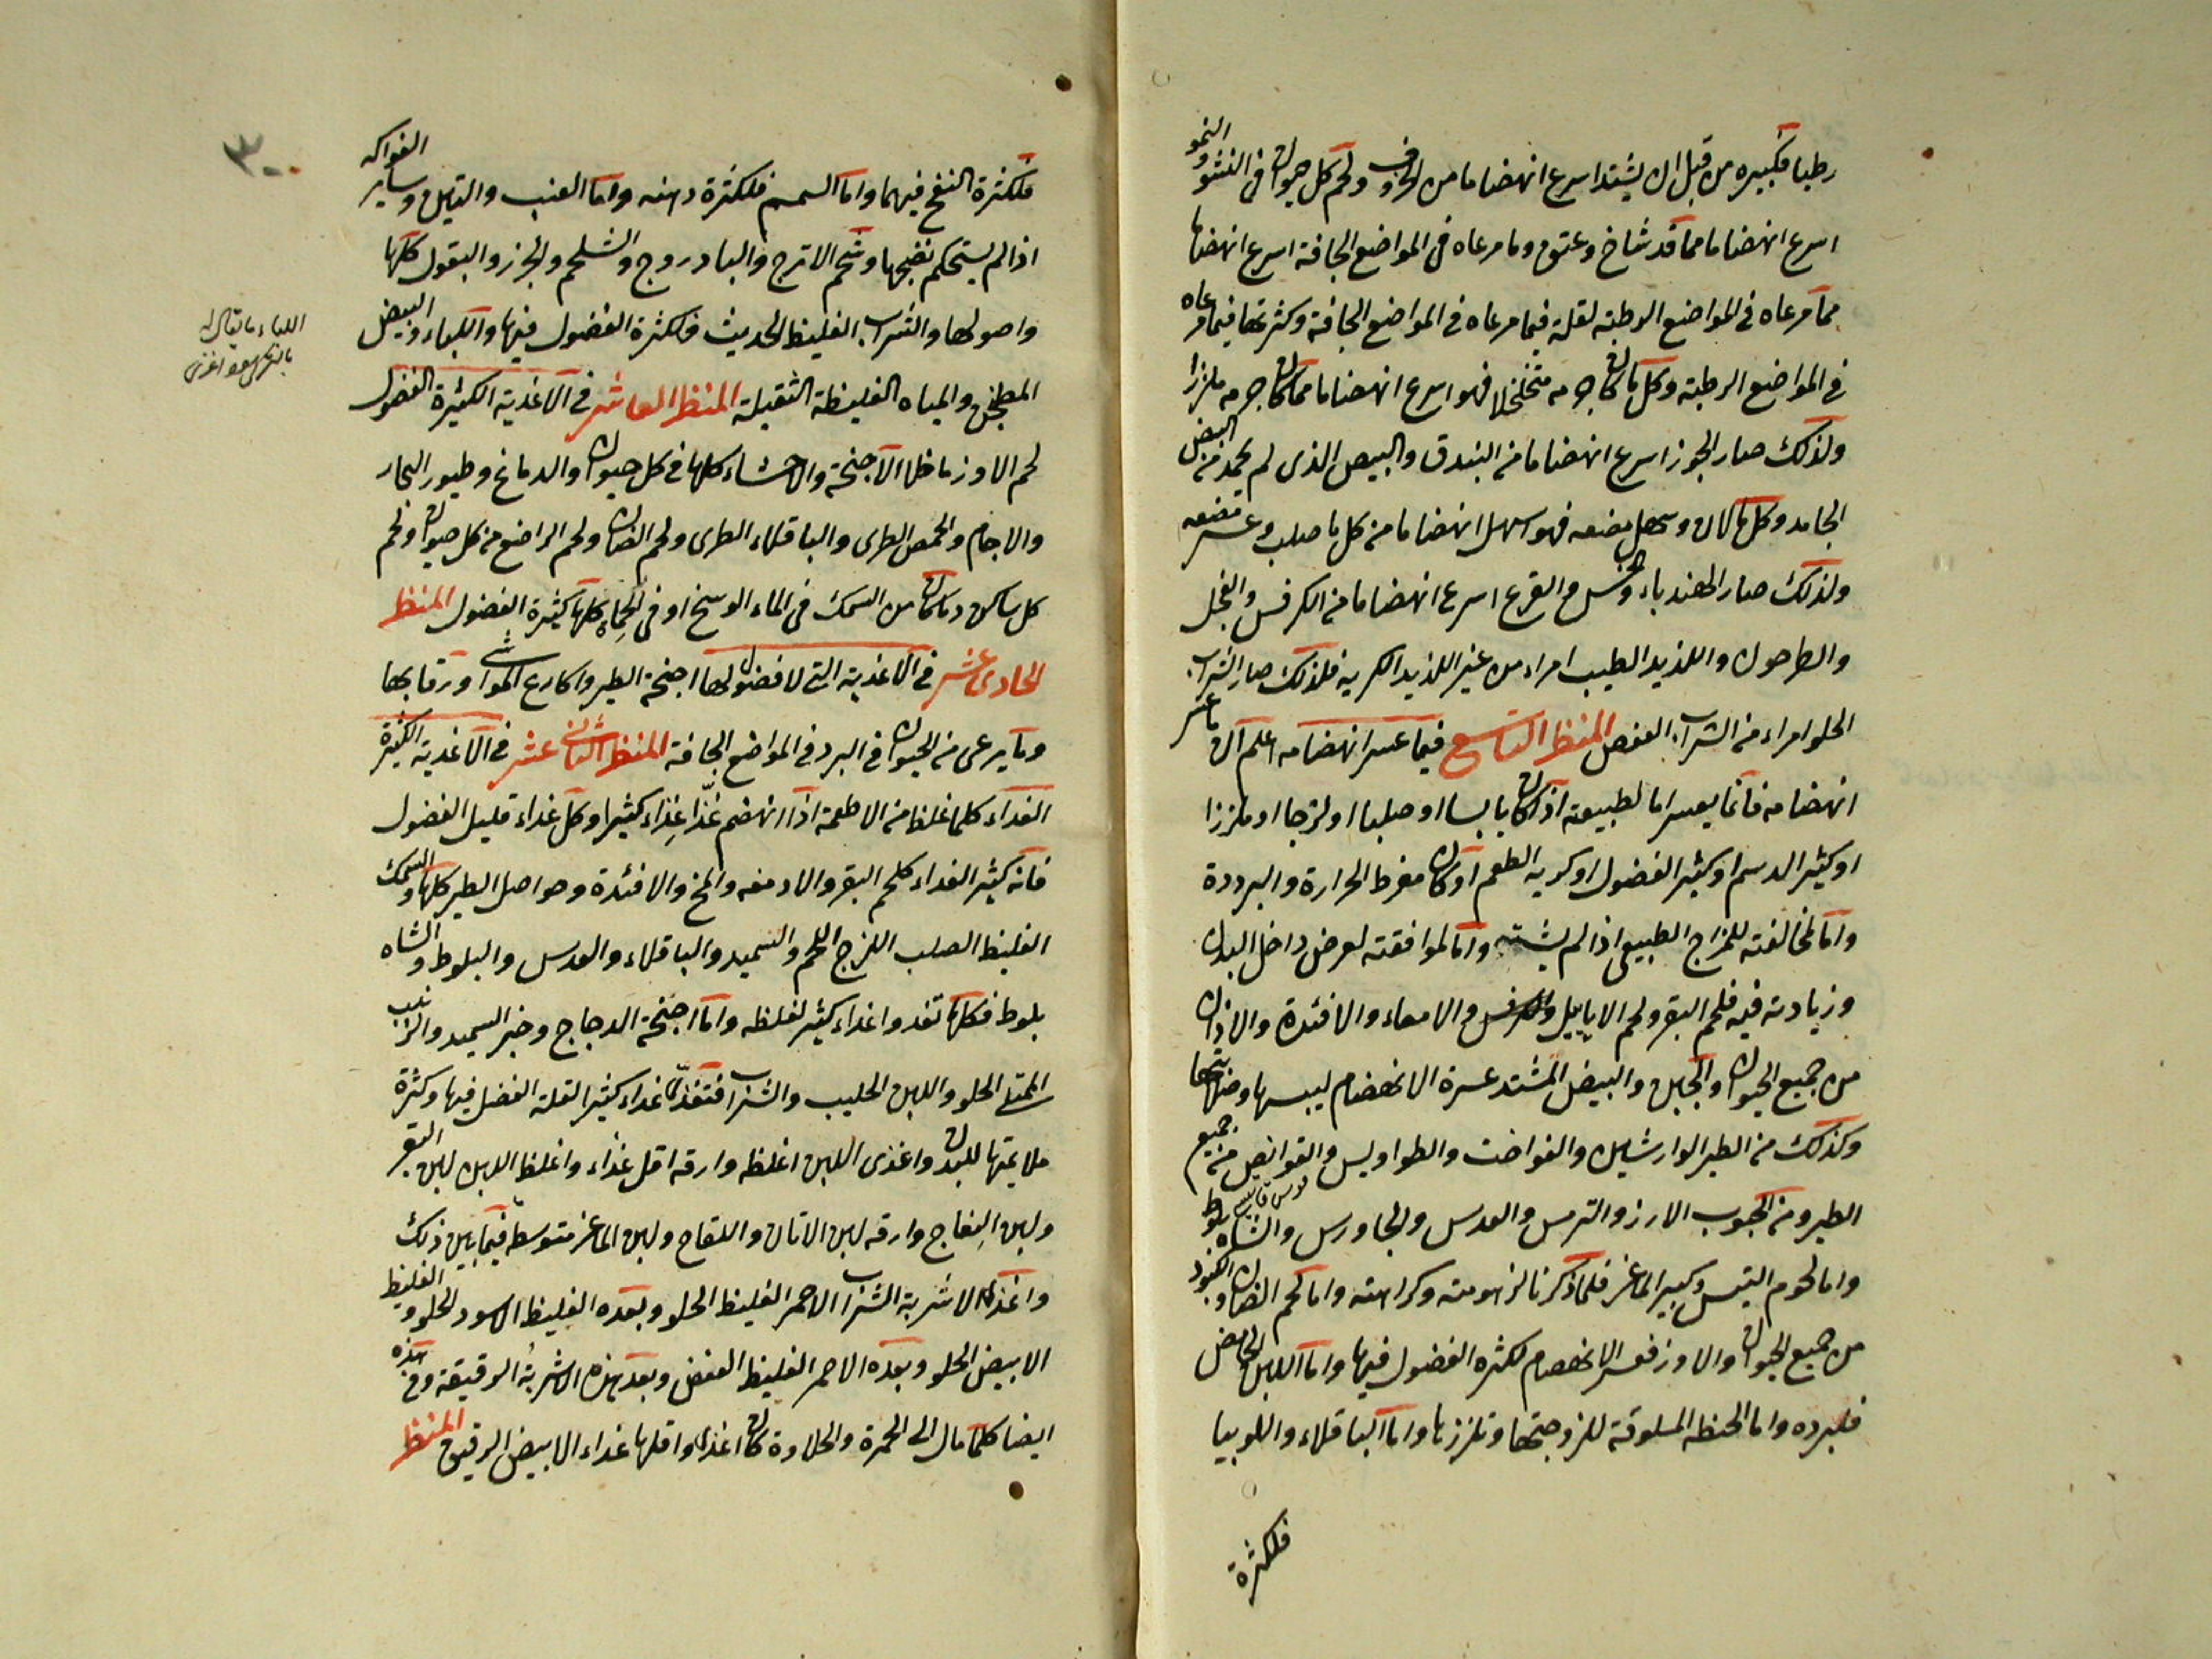 رطبا فكبيره من قبل ان يشتد اسرع انهضاما من الخروف ولحم كل حيوان فى النشو والنمو
اسرع انهضاما مما قد شاخ وعتق وما مرعاه فى المواضع الجافة اسرع انهضاما
مما مرعاه فى المواضع الرطبة لقلة فيما مرعاه فى المواضع الجافة وكثرتها فيما مرعاه
فى المواضع الرطبة وكل ما كان جرمه متخلخلا فهو اسرع انهضاما مما كان جرمه ملززا
ولذلك صار الجوز اسرع انهضاما من البندق والبيض الذى لم يجمد من البيض
الجامد وكل ما لان وسهل مضغه فهو اسهل انهضاما من كل ما صلب وعسر مضغه
ولذلك صار الهندباء والخس والقرع اسرع انهضاما من الكرفس والفجل
والطرخون واللذيذ الطيب امراء من غير اللذيذ الكريه فلذلك صار الشراب
الحلو امراء من الشراب العفص المنظر التاسع فيما عسر انهضامه اعلم ان ما عسر
انهضامه فانما يعسر اما لطبيعته اذا كان يابسا او صلبا او لزجا او ملززا
او كثير الدسم او كثير الفضول او كريه الطعم او كان مفرط الحرارة والبرودة
واما لمخالفته للمزاج الطبيعى اذا لم يشته واما لموافقته لعرض داخل البدن
وزيادته فيه فلحم البقر ولحم الاياييل والكرش والامعاء والافئدة والاذان
من جميع الحيوان والجبن والبيض المشتد عسرة الانهضام ليبسها وصلابتها
وكذلك من الطير الوارشين والفواخت والطواويس والقوانص من جميع
الطير ومن الحبوب الارز والترمس والعدس والجاورس والشاه بلوط
واما لحوم التيس وكبير الماعز فلما ذكرنا لزهومته وكراهته واما لحم الضان والكبود
من جميع الحيوان والاوز فعسر الانهضام لكثرة الفضول فيها واما اللبن الحامض
فلبرده واما الحنطه المسلوقة للزوجتها وتلززها واما الباقلاء واللوبيا
فلكثرة
فلكثرة النفخ فيهما واما السمسم فلكثرة دهنه واما العنب والتين وساير الفواكه
اذا لم يستحكم نضجها وشحم الاترج والبادروج والشلجم والجزر والبقول كلها
واصولها والشراب الغليظ الحديث فلكثرة الفضول فيها واللباء والبيض
المطجن والمياه الغليظة الثقيلة المنظر العاشر فى الاغذية الكثيرة الفضول
لحم الاوز ما خلا الاجنحة والاحشاء كلها فى كل حيوان والدماغ وطيور البحار
والاجام والحمص الطرى والباقلاء الطرى ولحم الضان ولحم الراضع من كل حيوان ولحم
كل ساكن وما كان من السمك فى الماء الوسخ او فى الحماء كلها كثيرة الفضول المنظر
الحادى عشر فى الاغذية التى لا فضول لها اجنحة الطير واكارع المواشى ورقابها
وما يرعى من الحيوان فى البر وفى المواضع الجافة المنظر الثانى عشر فى الاغذية الكثيرة
الغذاء كلما غلظ من الاطعمة اذا انهضم غذا غذاء كثيرا وكل غذاء قليل الفضول
فانه كثير الغذاء كلحم البقر والادمغه والمخ والافئدة وحواصل الطير كلها والسمك
الغليظ الصلب اللزج اللحم والسميد والباقلاء والعدس والبلوط والشاه
بلوط فكلها تغذوا غذاء كثير لغلظه واما اجنحة الدجاج وخبز السميد والزبيب
الممتلى الحلو واللبن الحليب والشراب فتغذى غذاء كثير لقلة الفضل فيها وكثرة
ملايمتها للبدن واغذى اللبن اغلظه وارقه اقل غذاء واغلظ اللبن لبن البقر
ولبن النعاج وارقه لبن الاتان واللقاح ولبن الماعز متوسط فيما بين ذلك
واغذى الاشربة الشراب الاحمر الغليظ الحلو وبعده الغليظ الاسود الحلو والغليظ
الابيض الحلو وبعده الاحمر الغليظ العفص وبعد هذه الاشربة الرقيقة وفى هذه
ايضا كلما مال الى الحمرة والحلاوة كان اغذى واقلها غذاء الابيض الرقيق المنظر
اللباء ما يقال له
٣٠